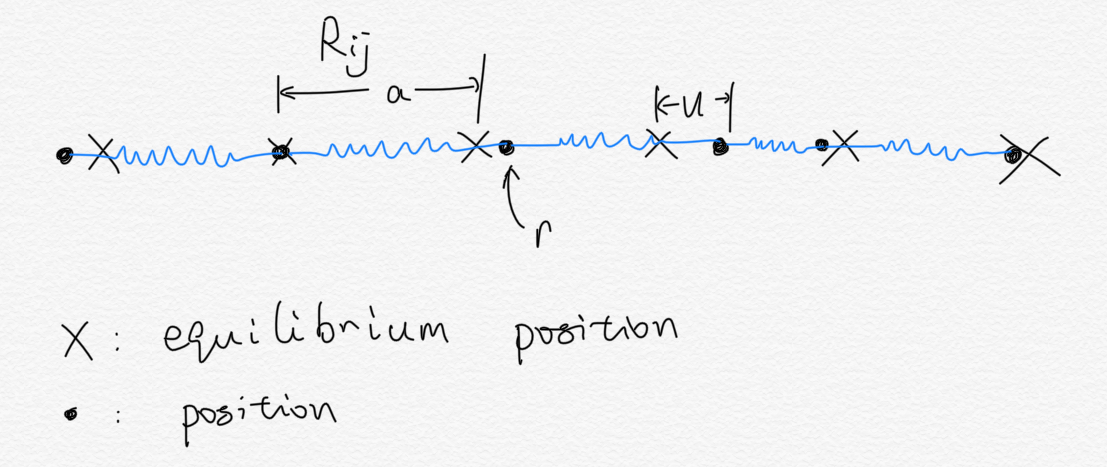 Rij
a
u
r
X : equilibrium position
• : position